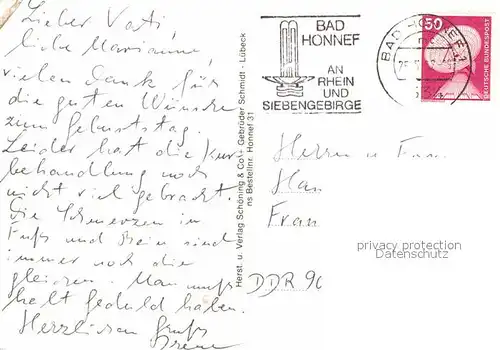 Lieber Vati,
liebe Marianne,
vielen Dank für
die guten Wünsche
zum Geburtstag.
Leider hat die Kur
behandlung noch
nicht viel gebracht.
Die Schmerzen im
Fuß und Bein sind
immer noch die
gleichen. Man muß
halt Geduld haben.
Herzlichen Gruß
Irene
Herst. u. Verlag Schöning & Co + Gebrüder Schmidt - Lübeck
ns Bestellnr. Honnef 31
BAD
HONNEF
AN
RHEIN
UND
SIEBENGEBIRGE
BAD HONNEF 1
50
DEUTSCHE BUNDESPOST
Herrn u Frau
Han
Fran
privacy protection
Datenschutz
DDR 90